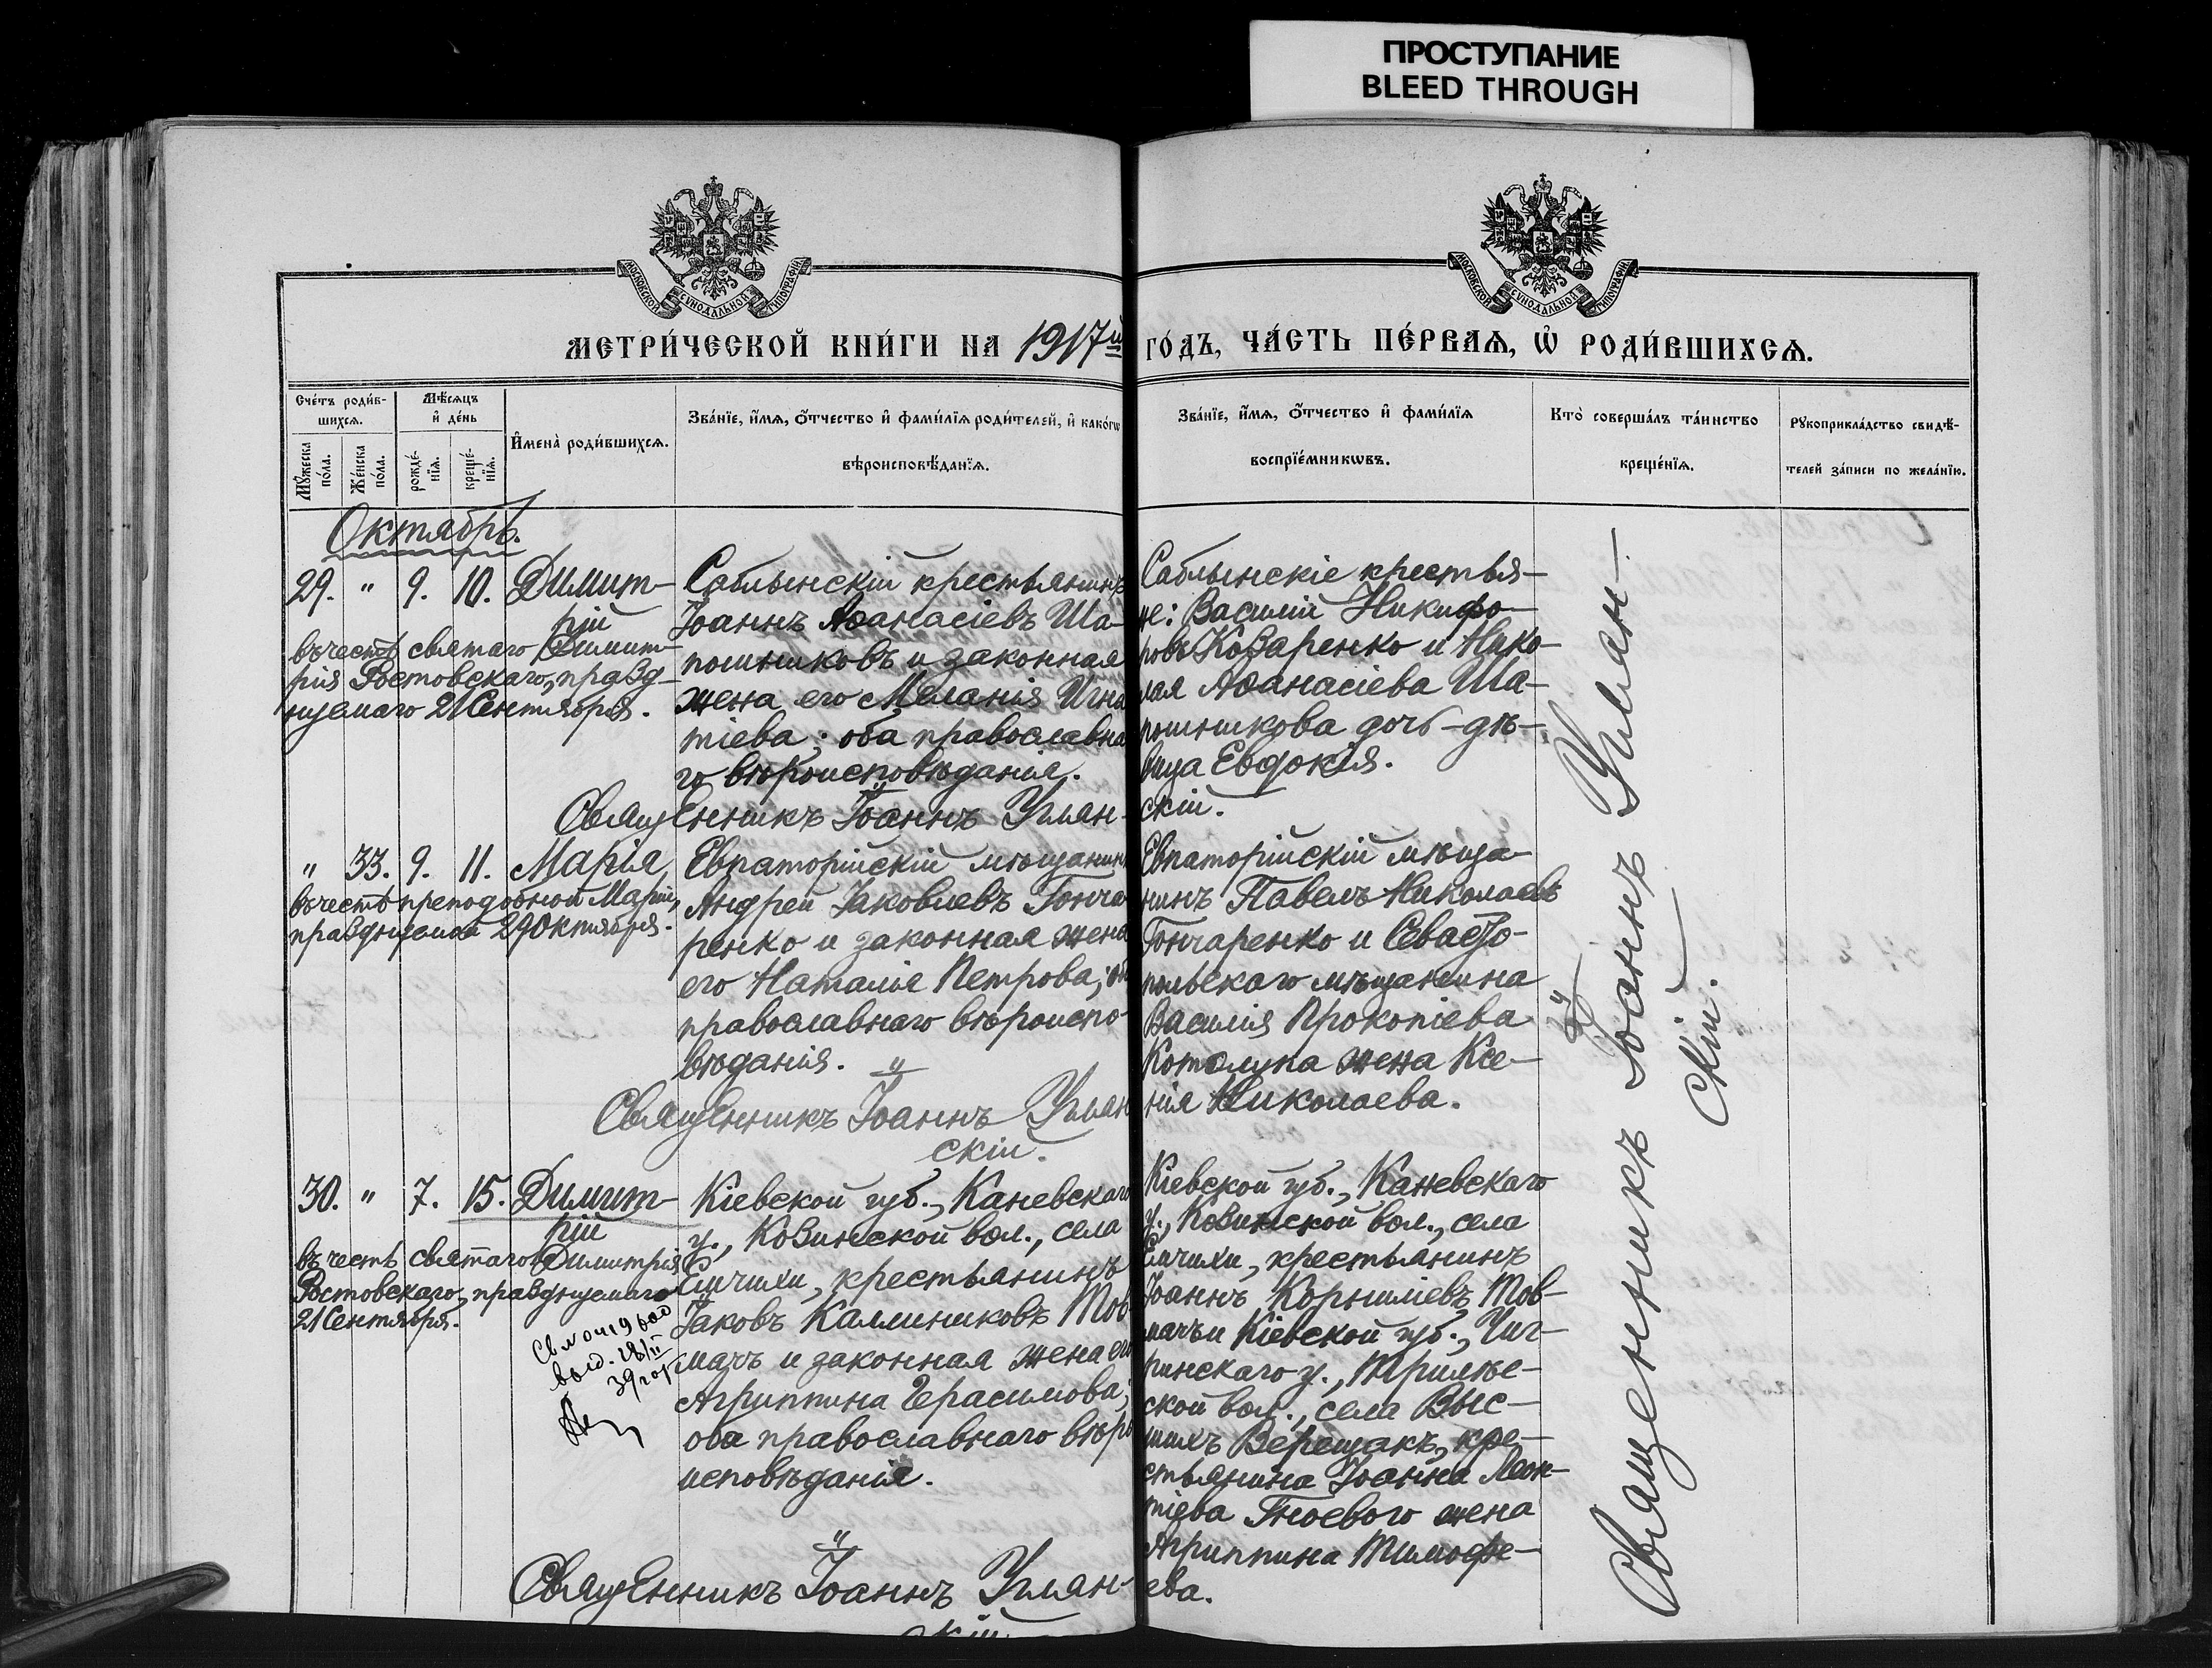 ПРОСТУПАНИЕ
BLEED THROUGH
МОСКОВСКОЙ СУНОДАЛЬНОЙ ТИПОГРАФІИ.
МОСКОВСКОЙ СУНОДАЛЬНОЙ ТИПОГРАФІИ.
МЕТРИ́ЧЕСКОЙ КНИ́ГИ НА 1917й ГО́ДЪ, ЧА́СТЬ ПЕ́РВАѦ, Ѡ҆ РОДИ́ВШИХСѦ.
Сче́тъ роди́в-
шихсѧ.
Мѣ́сѧцъ
и҆ де́нь
Мꙋ́жеска по́ла.
Же́нска по́ла.
рожде́-нїѧ.
креще́-нїѧ.
И҆мена̀ роди́вшихсѧ.
Зва́нїе, и҆́мѧ, ѻ҆́тчество и҆ фами́лїѧ роди́телей, и҆ како́гѡ
вѣроисповѣ́данїѧ.
Зва́нїе, и҆́мѧ, ѻ҆́тчество и҆ фами́лїѧ
воспрїе́мникѡвъ.
Кто̀ соверша́лъ та́инство
креще́нїѧ.
Рꙋкоприкла́дство свидѣ́-
телей за́писи по жела́нїю.
Октябрь.
29. " 9. 10. Димит-
рій
въ честь святаго Димит-
рія Ростовскаго, празд-
нуемаго 21 Сентября.
Саблынскій крестьянинъ
Іоаннъ Аѳанасіевъ Ша-
пошниковъ и законная
жена его Меланія Игна
тіева; оба православна
го вѣроисповѣданія.
Священникъ Іоаннъ Улан-
скій.
Саблынскіе крестья-
не: Василій Никифо-
ровъ Козаренко и Нико-
лая Аѳанасіева Ша-
пошникова дочь-дѣ-
вица Евдокія.
" 33. 9. 11. Марія,
въ честь преподобной Маріи,
празднуемой 29 Октября.
Евпаторійскій мѣщанинъ
Андрей Іаковлевъ Гонча
ренко и законная жена
его Наталія Петрова; об
православнаго вѣроиспо-
вѣданія.
Священникъ Іоаннъ Улан
скій.
Евпаторійскій мѣща-
нинъ Павелъ Николаевъ
Гончаренко и Севасто-
польскаго мѣщанина
Василія Прокопіева
жена Ксе-
нія Николаева.
30. " 7. 15. Димит-
рій
въ честь святаго Димитрія
Ростовскаго, празднуемаго
21 Сентября.
39 год
Кіевской губ., Каневскаго
у., Козинской вол., села
Емчихи, крестьянинъ
Іаковъ Каллиниковъ Тов
мачъ и законная жена его
Агриппина Герасимова;
оба православнаго вѣро
исповѣданія.
Священникъ Іоаннъ Улан-
скій
Кіевской губ., Каневскаго
у., Козинской вол., села
Емчихи, крестьянинъ
Іоаннъ Корниліевъ Тов-
мачъ и Кіевской губ., Чиг-
ринскаго у., Трилѣс-
ской вол., села Выс-
шихъ Верещакъ, кре-
стьянина Іоанна Леон-
тіева Гноевого жена
Агриппина Тимофе-
ева.
Священникъ Іоаннъ Улан-
скій.